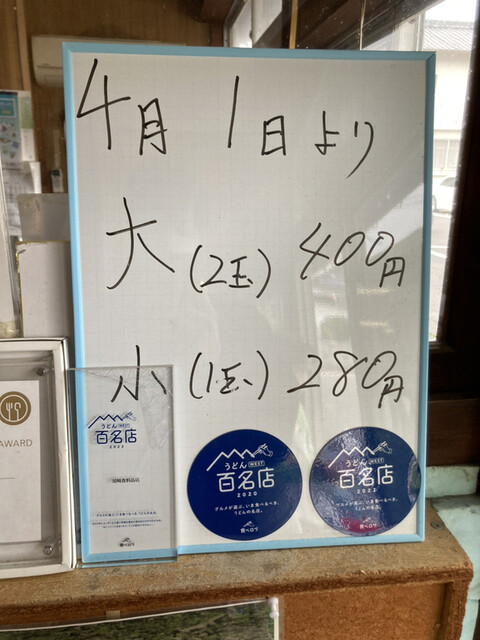 4月1日より
大(2玉) 400円
小(1玉) 280円
AWARD
うどん
百名店
2020
うどん WEST
百名店
2020
グルメが選ぶ、いま食べるべき、
うどんの名店。
食べログ
うどん WEST
百名店
グルメが選ぶ、いま食べるべき、
うどんの名店。
食べログ
食べログ